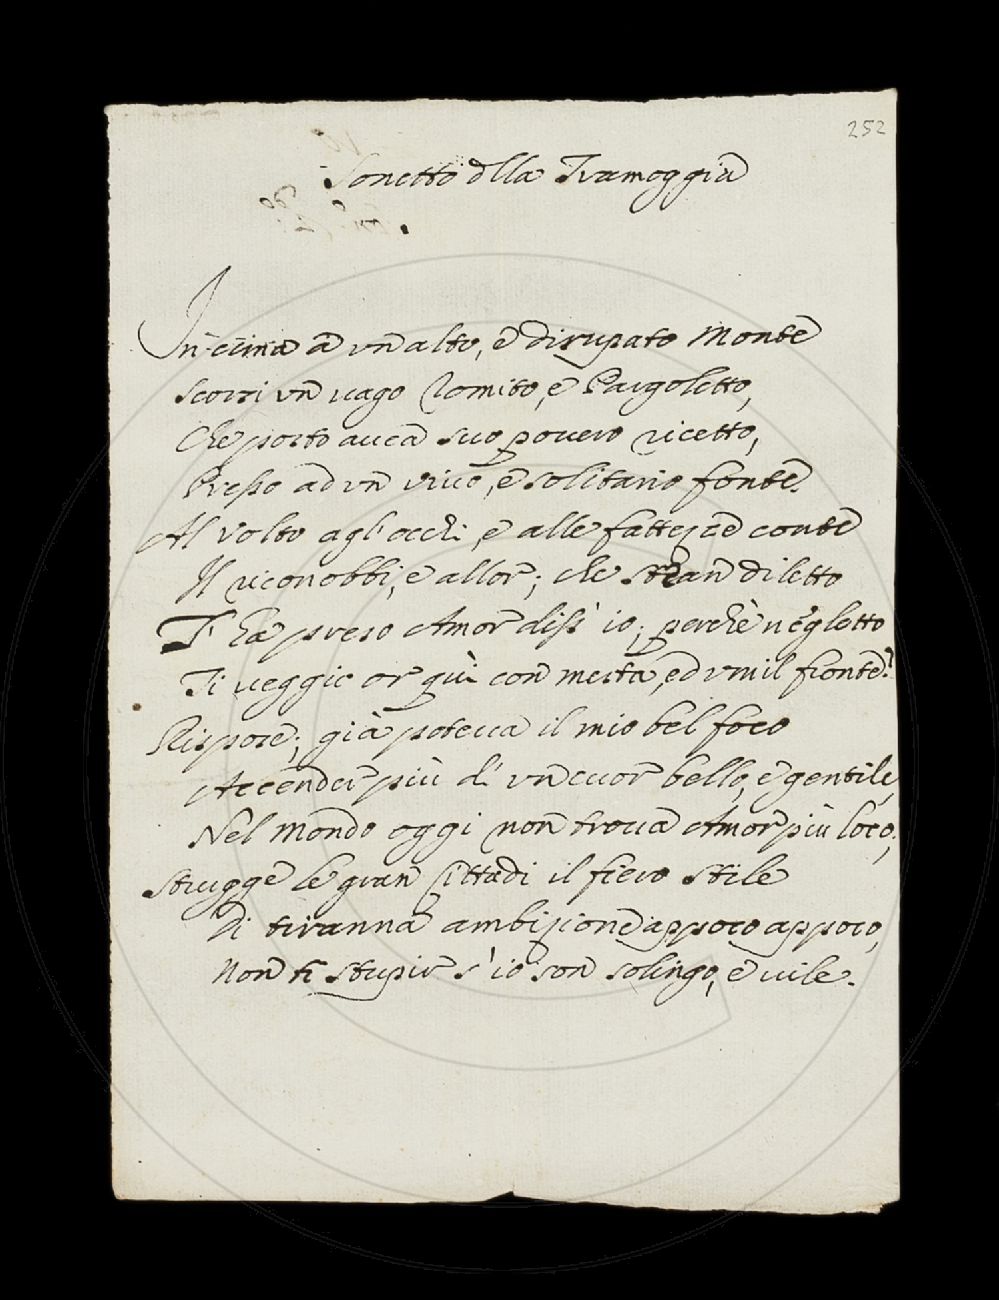 252
Sonetto dlla Tramoggia
In cima à vn alto, e dirupato Monte
Scorsi vn uago Romito, e Pargoletto,
Che posto auea suo pouero ricetto,
Presso ad vn viuo, e solitario fonte.
Al volto agl'occhi, e alle fattezze conte
Il riconobbi, e allor; che stran diletto
T'hà preso Amor diss'io; perchè negletto
Ti ueggio or quì con mesta, ed vmil fronte?
Rispose; già poteua il mio bel foco
Accender più d'vn cuor bello, e gentile,
Nel Mondo oggi non troua Amor più loco;
Strugge le gran Cittadi il fiero stile
Di tiranna ambizione appoco appoco,
Non ti stupir s'io son solingo, e uile.